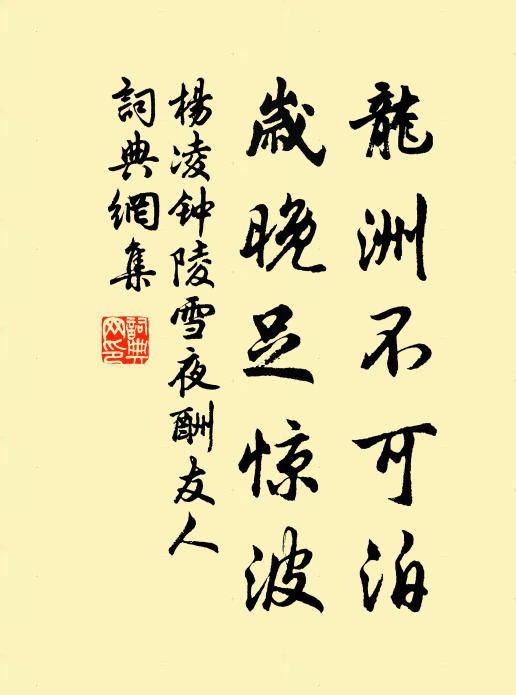 龍洲不可泊
歲晚足惊波
楊凌钟陵雪夜酬友人
詞典網集
詞典
网印